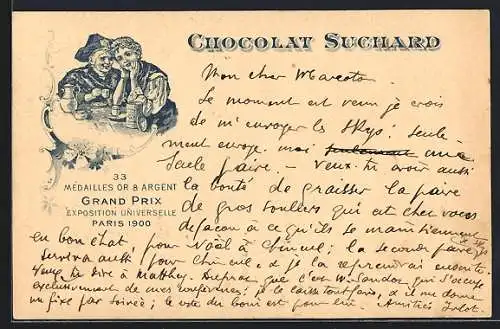 CHOCOLAT SUCHARD
Mon cher
Le moment est venu je crois
de m'envoyer les Skys; seule-
ment envoye-moi seulement une
seule paire. — Veux-tu avoir aussi
33
MÉDAILLES OR & ARGENT
GRAND PRIX
EXPOSITION UNIVERSELLE
PARIS 1900
la bonté de graisser la paire
de gros souliers qui est chez vous
de façon à ce qu'ils se maintiennent
en bon état, pour la seconde paire
servira aussi pour & je la reprendrai ensuite.
Veux-tu dire à Matthey. que c'est W. Sandoz qui s'occupe
exclusivement de mes conférences; je le laisse tout faire, & il me donne
un fixe par soirée; le reste du boni est pour lui. Amitiés